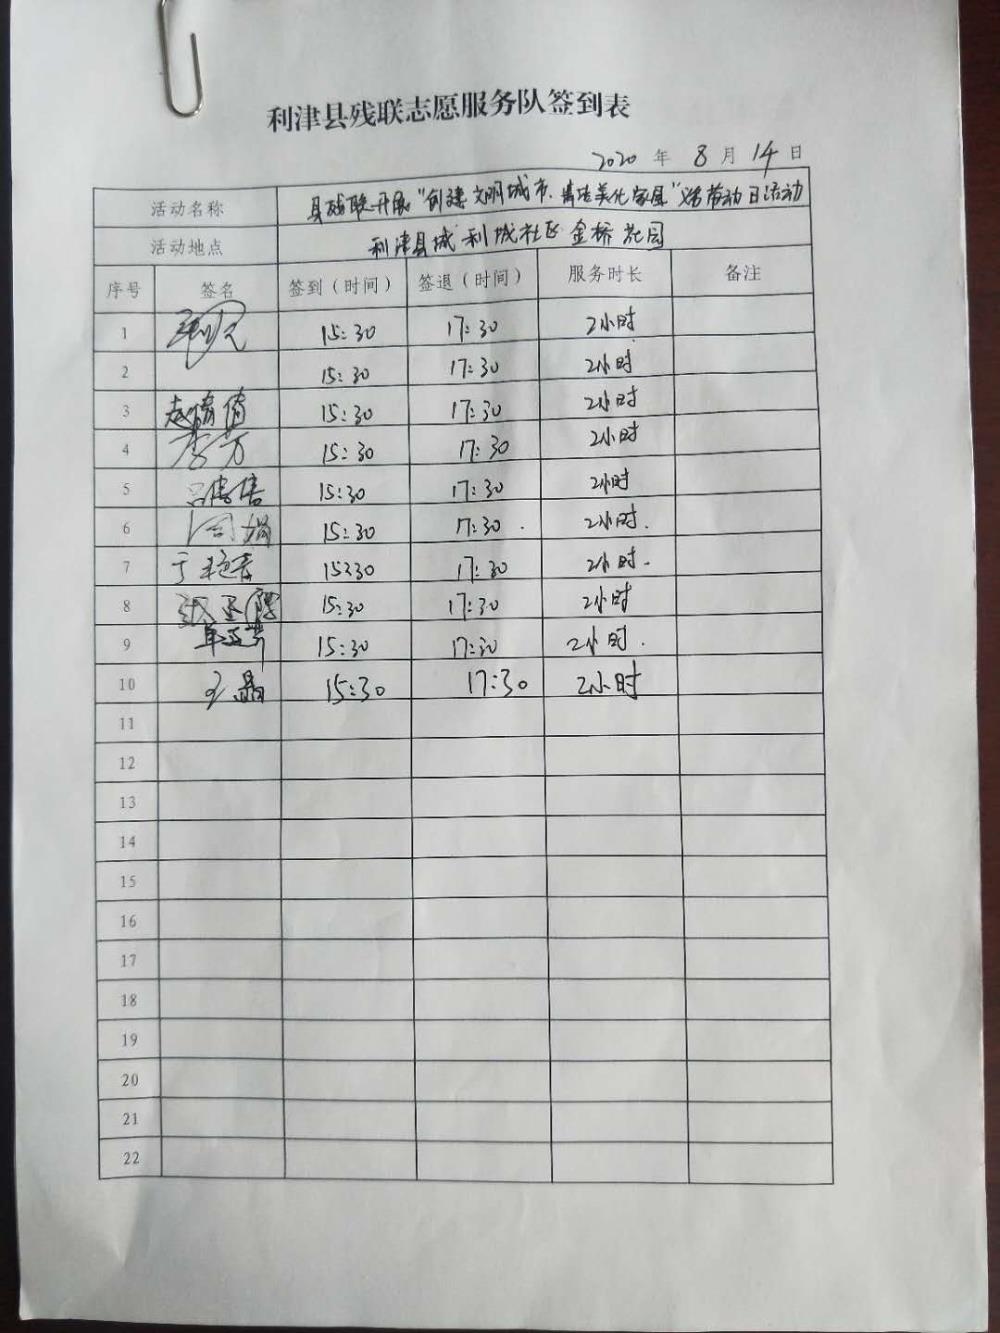 利津县残联志愿服务队签到表
2020 年 8 月 14 日
活动名称 县残联开展"创建文明城市、清洁美化家园"义务劳动日活动
活动地点 利津县城利城社区金桥花园
序号 签名 签到（时间） 签退（时间） 服务时长 备注
1 15:30 17:30 2小时
2 15:30 17:30 2小时
3 赵倩倩 15:30 17:30 2小时
4 李芳 15:30 17:30 2小时
5 吕倩倩 15:30 17:30 2小时
6 15:30 17:30. 2小时.
7 于艳春 15:30 17:30 2小时.
8 15:30 17:30 2小时
9 15:30 17:30 2小时.
10 王晶 15:30 17:30 2小时
11
12
13
14
15
16
17
18
19
20
21
22